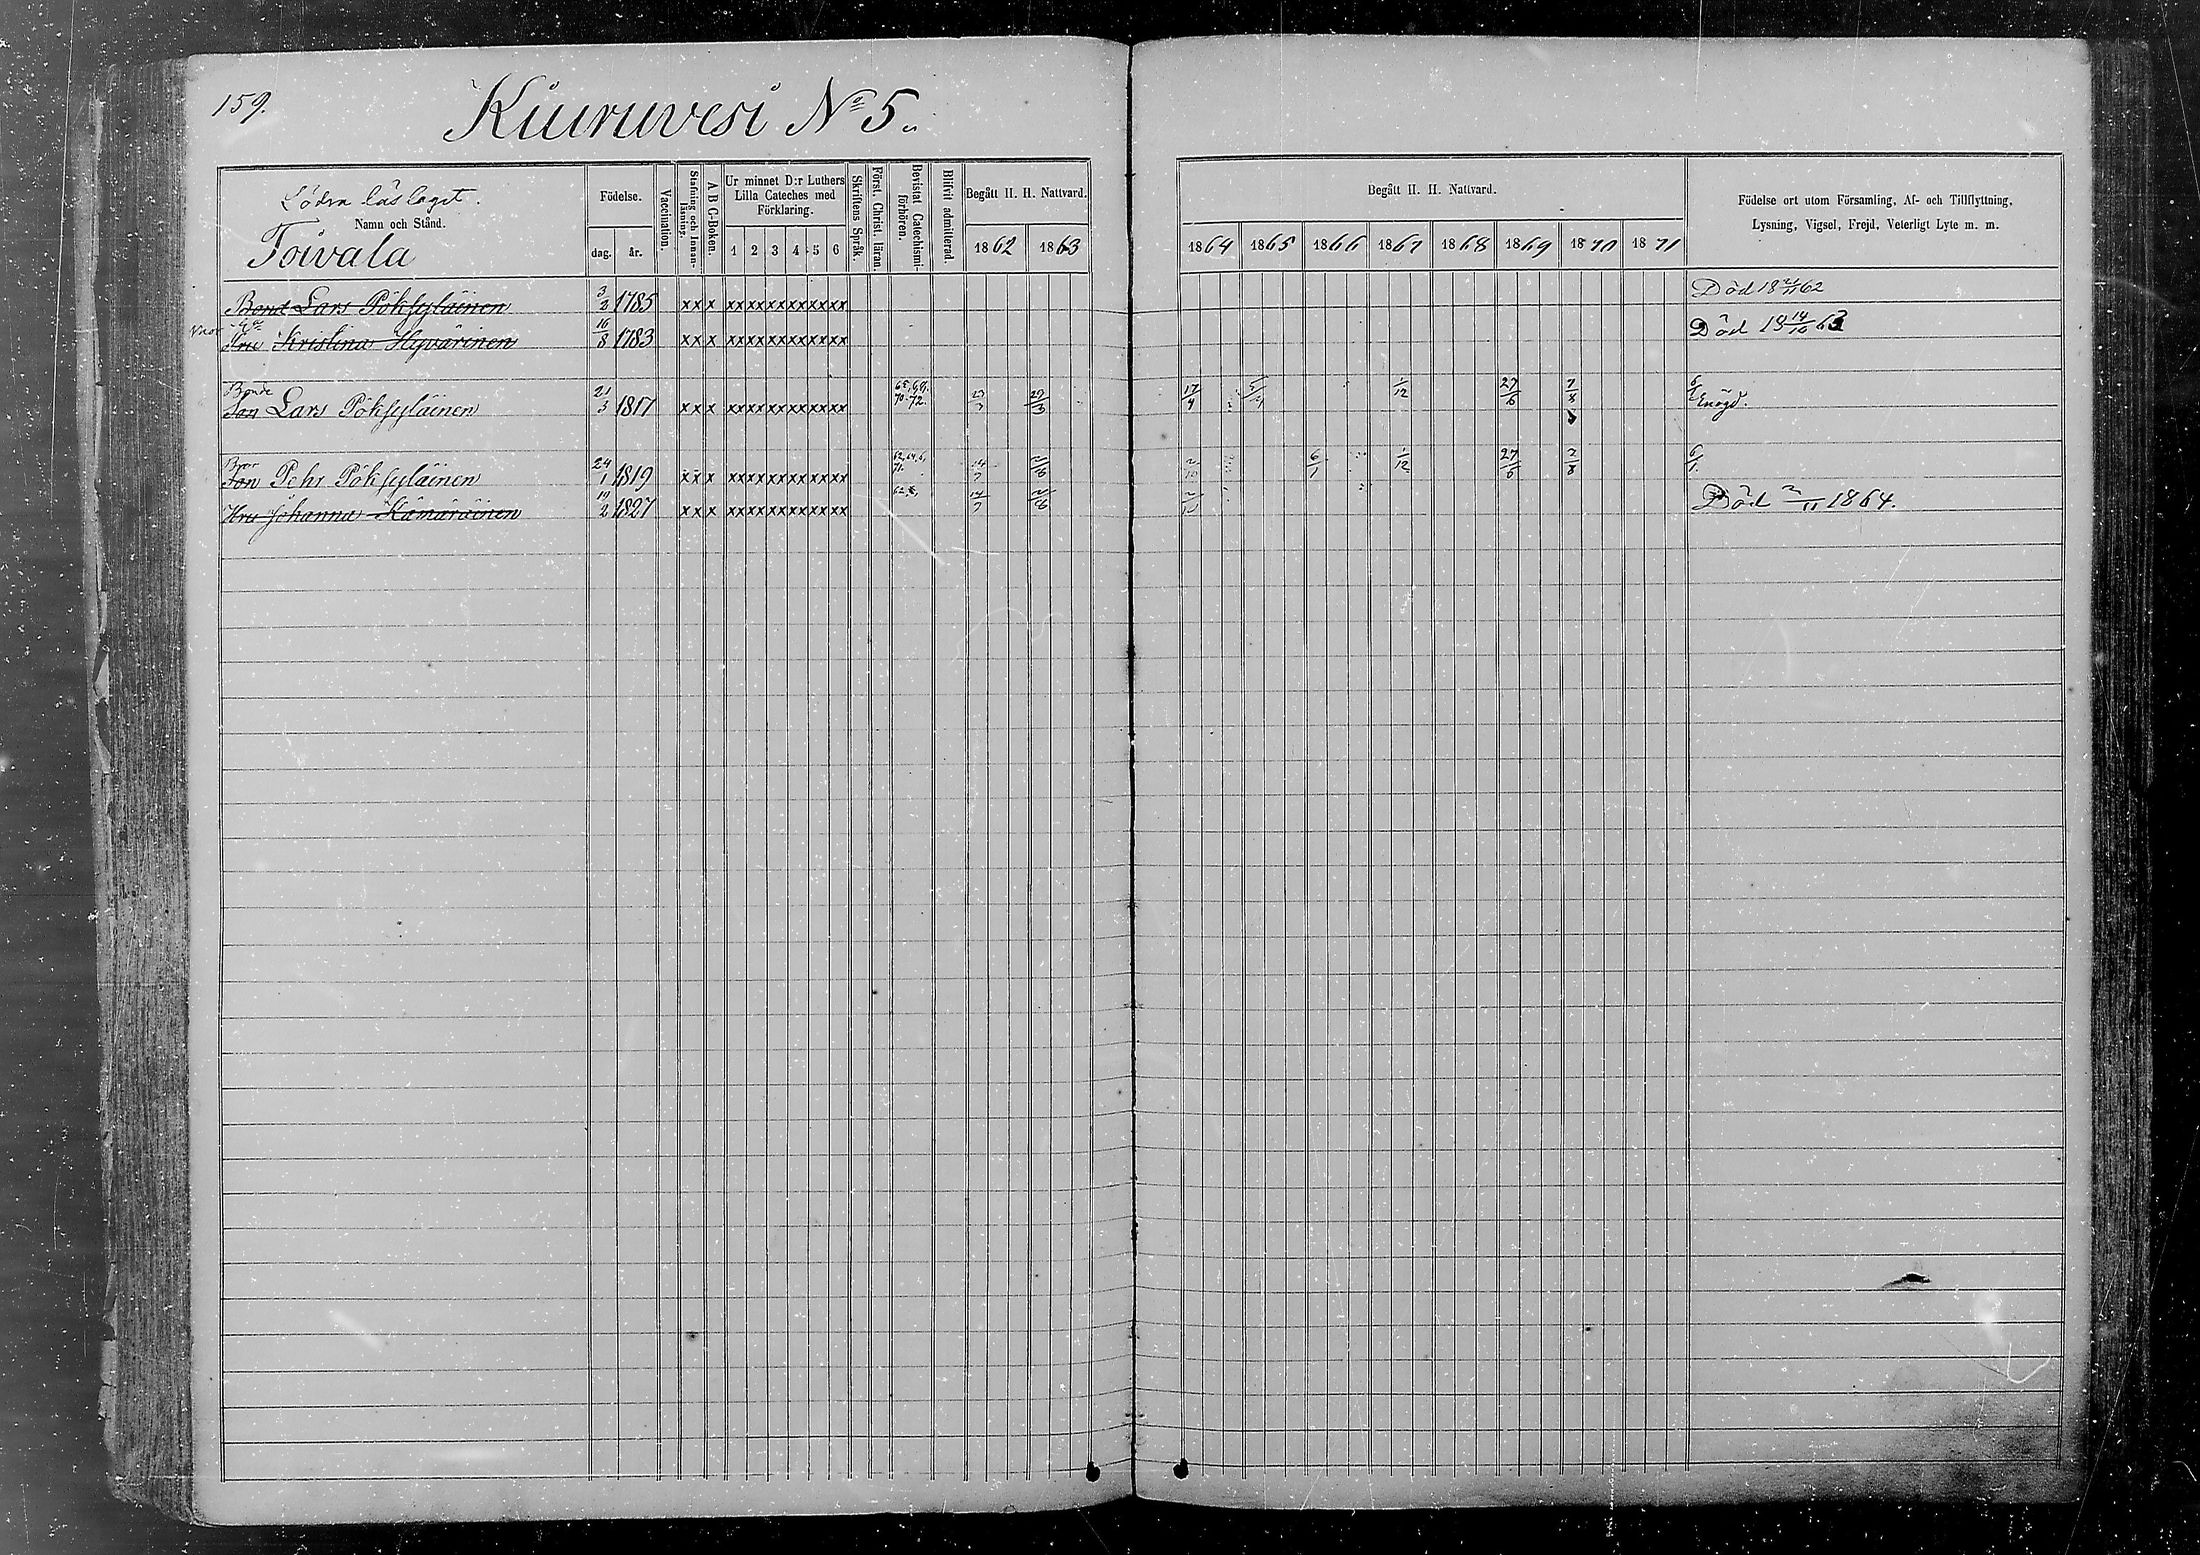 159.
Kiuruvesi No 5.
Södra läslaget.
Namn och Stånd.
Toivala
Födelse.
dag. år.
Vaccination.
Stafning och Innan-läsning.
A B C-Boken.
Ur minnet D:r Luthers
Lilla Cateches med
Förklaring.
1 2 3 4 5 6
Skriftens Språk.
Först. Christ. läran.
Bevistat Catechismi-förhören.
Blifvit admitterad.
Begått H. H. Nattvard.
1862 1863
Begått H. H. Nattvard.
1864 1865 1866 1867 1868 1869 1870 1871
Födelse ort utom Församling, Af- och Tillflyttning,
Lysning, Vigsel, Frejd, Veterligt Lyte m. m.
Bond Lars Pöksyläinen 3/2 1785 x x x x x x x x x x x x x x x Död 18 21/11 62
Hru Kristina Hyvärinen 16/8 1783 x x x x x x x x x x x x x x x Död 18 14/10 63
Bonde
Son Lars Pöksyläinen 21/3 1817 x x x x x x x x x x x x x x x 65, 69, 70. 72. 23/3 29/3 17/4 5/4 1/12 27/6 7/8 6/1 Enögd.
Bror
Son Pehr Pöksyläinen 24/1 1819 x x x x x x x x x x x x x x x 71. 14/3 2/6 2/10 6/1 1/12 27/6 7/8 6/1.
Hru Johanna Kämäräinen 19/2 1827 x x x x x x x x x x x x x x x 14/3 2/6 2/10 Död 2/11 1864.